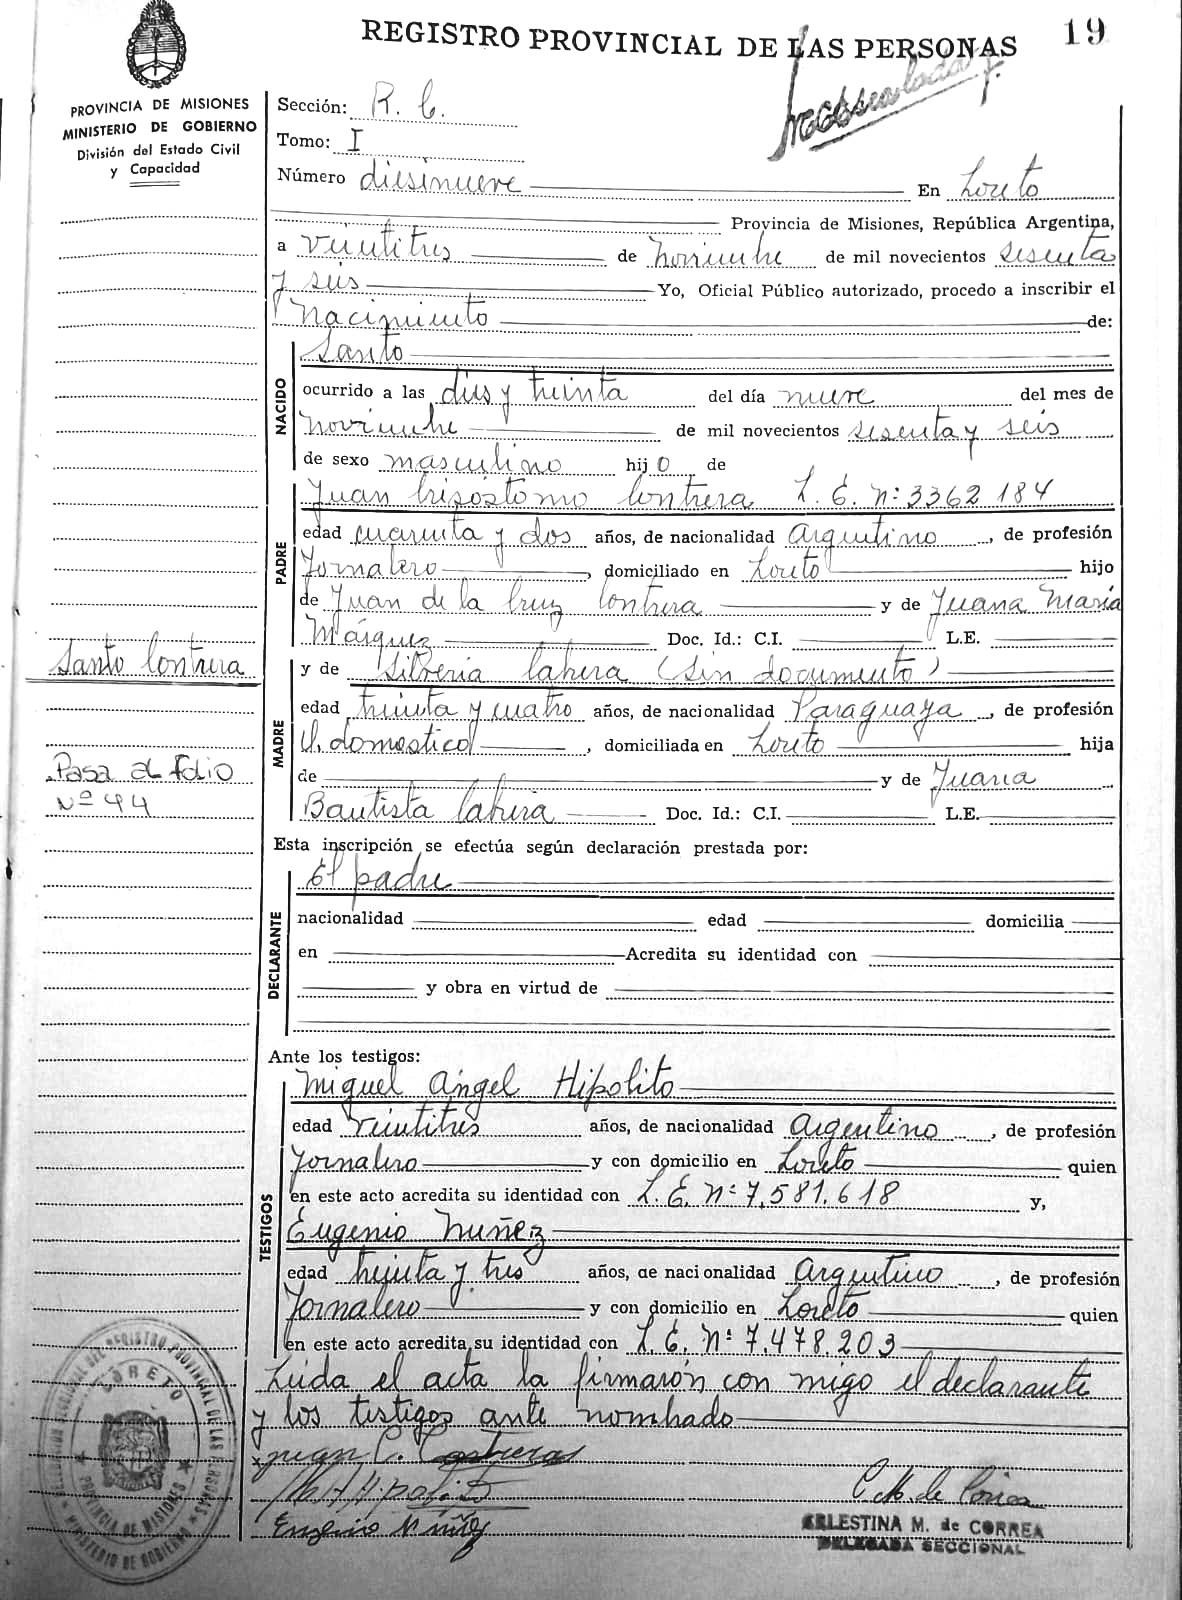 REGISTRO PROVINCIAL DE LAS PERSONAS
19
PROVINCIA DE MISIONES
MINISTERIO DE GOBIERNO
División del Estado Civil
y Capacidad
Sección: R. C.
Tomo: I
Número diesinueve En Loreto
Provincia de Misiones, República Argentina,
a veintitres de noviembre de mil novecientos sesenta
y seis Yo, Oficial Público autorizado, procedo a inscribir el
Nacimiento de:
Santo
NACIDO
ocurrido a las dies y treinta del día nueve del mes de
noviembre de mil novecientos sesenta y seis
de sexo masculino hijo de
Juan Crisóstomo Contrera L. E. Nº: 3362184
PADRE
edad cuarenta y dos años, de nacionalidad Argentino, de profesión
Jornalero, domiciliado en Loreto hijo
de Juan de la Cruz Contrera y de Juana María
Márquez Doc. Id.: C.I. L.E.
Santo Contrera
y de Silveria Cabrera (sin documento)
MADRE
edad treinta y cuatro años, de nacionalidad Paraguaya, de profesión
Q. domestico, domiciliada en Loreto hija
Pasa al folio
Nº 44
de y de Juana
Bautista Cabrera Doc. Id.: C.I. L.E.
Esta inscripción se efectúa según declaración prestada por:
El padre
DECLARANTE
nacionalidad edad domicilia
en Acredita su identidad con
y obra en virtud de
Ante los testigos:
Miguel Angel Hipolito
TESTIGOS
edad veintitres años, de nacionalidad Argentino, de profesión
Jornalero y con domicilio en Loreto quien
en este acto acredita su identidad con L. E. Nº 7.581.618 y,
Eugenio Nuñez
edad treinta y tres años, de nacionalidad Argentino, de profesión
Jornalero y con domicilio en Loreto quien
en este acto acredita su identidad con L. E. Nº 7.478.203
Leida el acta la firmarón con migo el declarante
y los testigos ante nombrado
Juan C. Contreras
M. A. Hipolito
Eugenio Nuñez
C. M. de Correa
CELESTINA M. de CORREA
DELEGADA SECCIONAL
LORETO
PROVINCIA DE MISIONES
MINISTERIO DE GOBIERNO